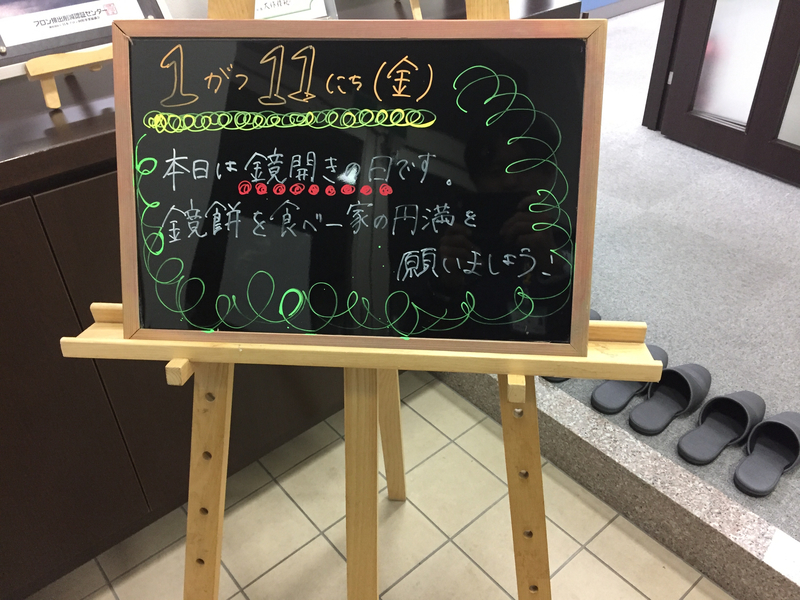 フロン排出削減認証センター
1がつ11にち(金)
本日は鏡開きの日です。
鏡餅を食べ一家の円満を
願いましょう!